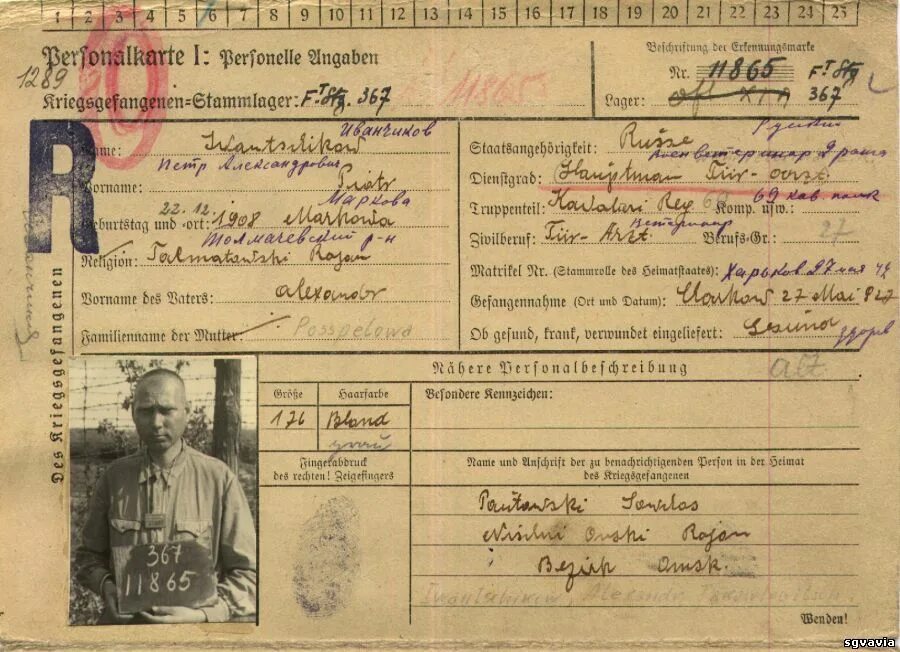 1 2 3 4 5 6 7 8 9 10 11 12 13 14 15 16 17 18 19 20 21 22 23 24 25
Personalkarte I: Personelle Angaben
1289
Kriegsgefangenen=Stammlager: FTStg. 367
11865
Beschriftung der Erkennungsmarke
Nr. 11865 FTStg
Lager: 367
R
Des Kriegsgefangenen
Иванчиков
Name: Iwantschikow
Петр Александрович
Vorname: Piotr
Маркова
22.12
Geburtstag und =ort: 1908 Markowa
Толмачевский р-н
Religion: Talmatowski Rajan
Vorname des Vaters: Alexandr
Familienname der Mutter: Posspelowa
Русский
Staatsangehörigkeit: Russe
Военветеринар 3 ранга
Dienstgrad: Hauptman Tür-arzt
Truppenteil: Kavaleri Reg 69 Komp. usw.: 69 кав. полк
Ветеринар
Zivilberuf: Tür-Arzt Berufs=Gr.: 27
Matrikel Nr. (Stammrolle des Heimatstaates): Харьков 27 мая 42
Gefangennahme (Ort und Datum): Charkow 27 Mai
Ob gesund, krank, verwundet eingeliefert: Gesund
здоров
Nähere Personalbeschreibung
Größe
Haarfarbe
Besondere Kennzeichen:
176
Bland
grau
Fingerabdruck
des rechten! Zeigefingers
Name und Anschrift der zu benachrichtigenden Person in der Heimat
des Kriegsgefangenen
367
11865
Rajan
Bezirk Omsk.
Alexandr
Wenden!
sgvavia